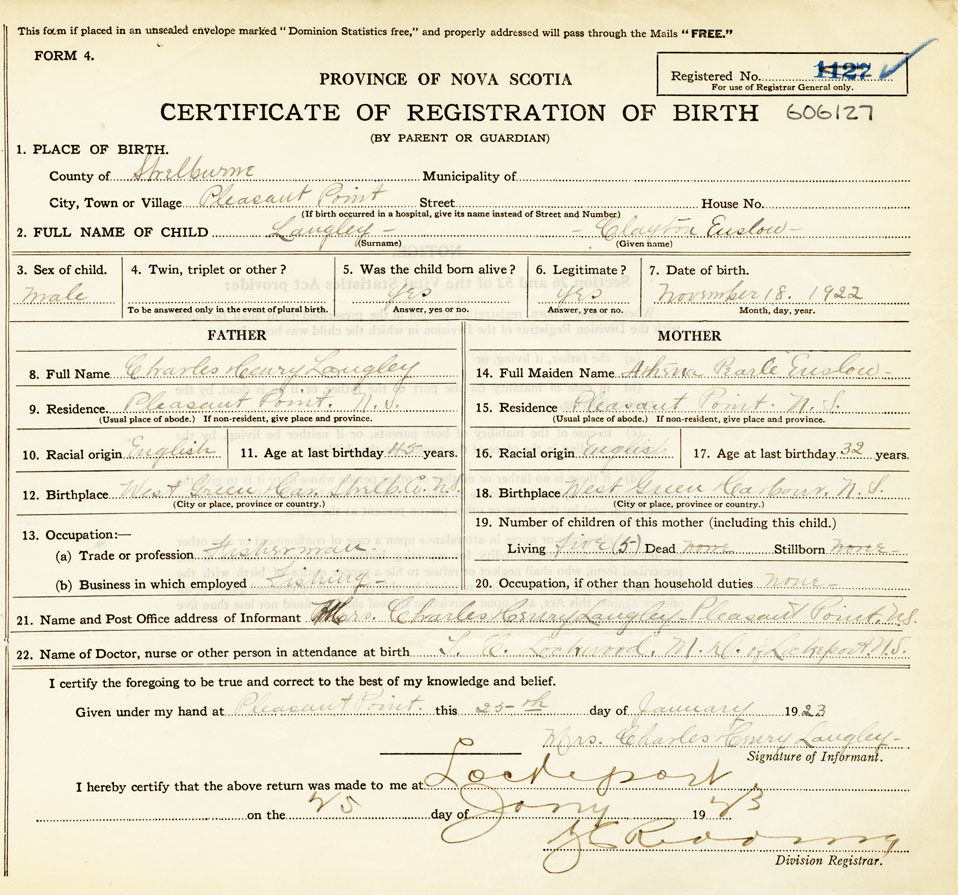 This form if placed in an unsealed envelope marked "Dominion Statistics free," and properly addressed will pass through the Mails "FREE."
FORM 4.
Registered No. 1127
For use of Registrar General only.
PROVINCE OF NOVA SCOTIA
CERTIFICATE OF REGISTRATION OF BIRTH 606127
(BY PARENT OR GUARDIAN)
1. PLACE OF BIRTH.
County of Shelburne Municipality of
City, Town or Village Pleasant Point Street House No.
(If birth occurred in a hospital, give its name instead of Street and Number)
2. FULL NAME OF CHILD Langley - - Clayton Enslow -
(Surname) (Given name)
3. Sex of child. 4. Twin, triplet or other? 5. Was the child born alive? 6. Legitimate? 7. Date of birth.
Male yes yes November 18. 1922
To be answered only in the event of plural birth. Answer, yes or no. Answer, yes or no. Month, day, year.
FATHER MOTHER
8. Full Name Charles Henry Langley 14. Full Maiden Name Athena Enslow -
9. Residence Pleasant Point. N.S. 15. Residence Pleasant Point. N.S.
(Usual place of abode.) If non-resident, give place and province. (Usual place of abode.) If non-resident, give place and province.
10. Racial origin English 11. Age at last birthday 45 years. 16. Racial origin 17. Age at last birthday 32 years.
12. Birthplace West Green Har. Shelb. Co. N.S. 18. Birthplace West Green Harbour. N.S.
(City or place, province or country.) (City or place, province or country.)
13. Occupation:— 19. Number of children of this mother (including this child.)
(a) Trade or profession Fisherman. Living five (5) Dead none Stillborn none -
(b) Business in which employed Fishing - 20. Occupation, if other than household duties none -
21. Name and Post Office address of Informant Mrs. Charles Henry Langley - Pleasant Point. N.S.
22. Name of Doctor, nurse or other person in attendance at birth Lockwood. M.D. of Lockeport N.S.
I certify the foregoing to be true and correct to the best of my knowledge and belief.
Given under my hand at Pleasant Point. this 25th day of January 1923
Mrs. Charles Henry Langley -
Signature of Informant.
I hereby certify that the above return was made to me at Lockeport
on the 25 day of Jany 1923
Division Registrar.